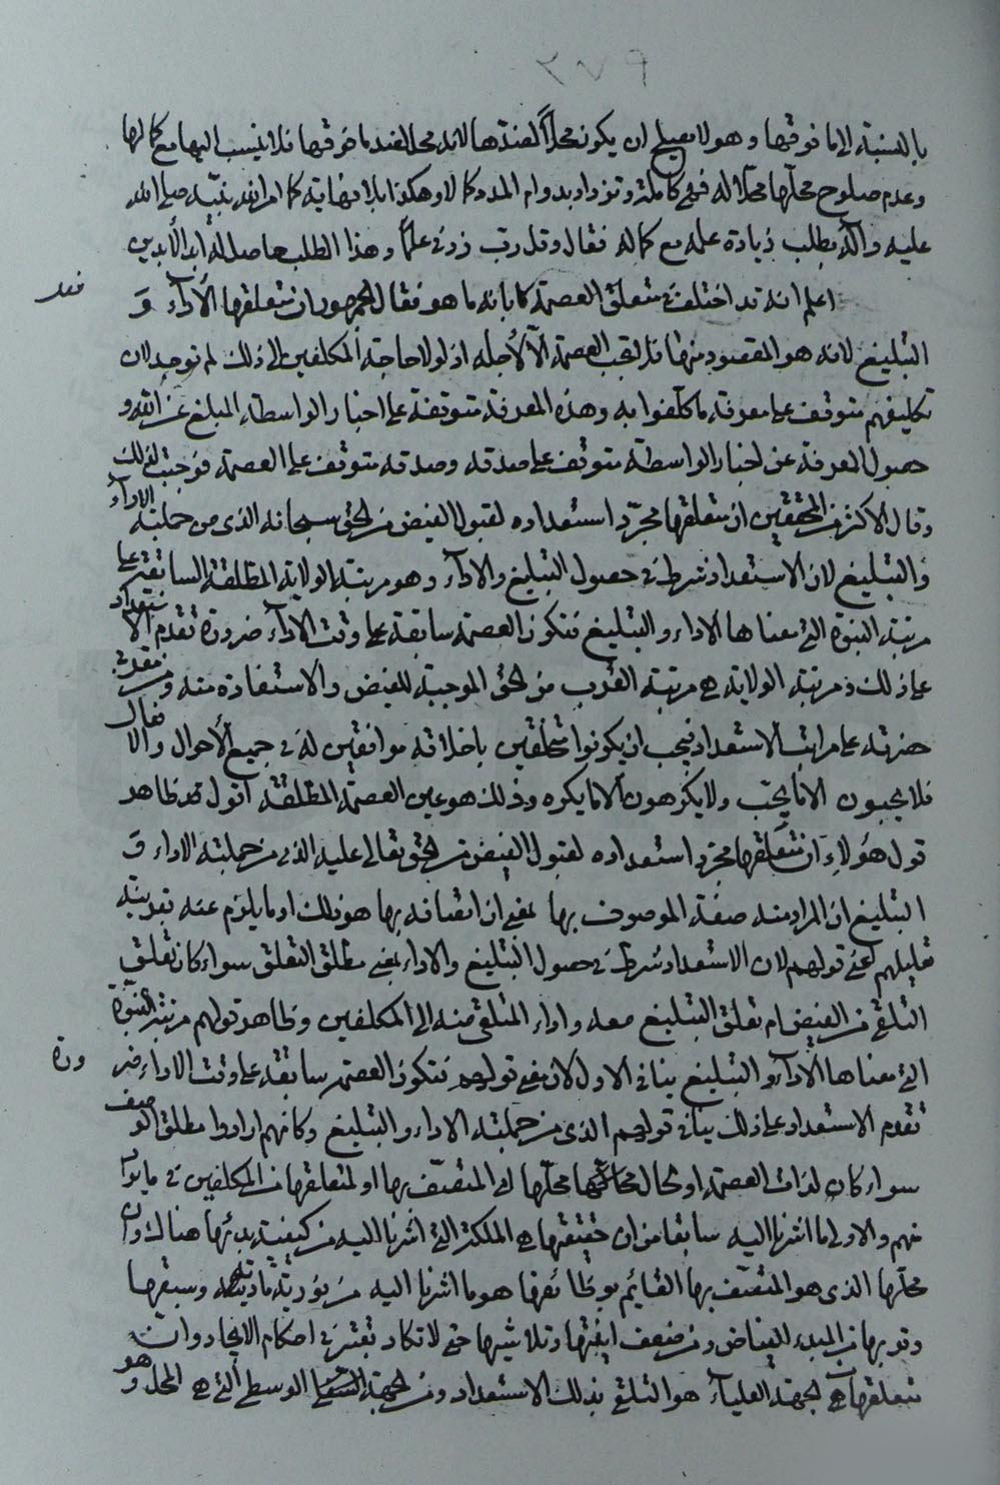 ٢٧٦
بالنسبة الى ما فوقها وهو لا يصلح ان يكون محلاً لضدها لانه محل لضد ما فوقها فلا ينسب اليها مع كمالها
وعدم صلوح محلها محلا له فهي كاملة وتزداد بدوام المدد كمالا وهكذا بلا نهاية كما امر الله نبيه صلى الله
عليه وآله بطلب زيادة علمه مع كماله فقال وقل رب زدني علماً وهذا الطلب حاصل له ابد الآبدين
اعلم انه قد اختلف في متعلق العصمة كما بانه ما هو فقال الجمهور ان متعلقها الأداء و
التبليغ لانه هو المقصود منها فلا تجب العصمة الا لأجله اذ لولا حاجة المكلفين الى ذلك لم توجد لان
تكليفهم متوقف على معرفة ما كلفوا به وهذه المعرفة متوقفة على اخبار الواسطة المبلغ عن الله و
حصول المعرفة عن اخبار الواسطة متوقف على صدقه وصدقه متوقف على العصمة فوجبت لذلك
وقال الاكثر من المحققين ان متعلقها مجرد استعداده لقبول الفيض من الحق سبحانه الذي من جملته الاداء
والتبليغ لان الاستعداد شرط في حصول التبليغ والاداء وهو مرتبة الولاية المطلقة السابقة على
مرتبة النبوة التي معناها الاداء والتبليغ فتكون العصمة سابقة على وقت الاداء ضرورة تقدم الاستعداد
على ذلك ومرتبة الولاية هي مرتبة القرب من الحق الموجبة للفيض والاستفادة منه ومن
حضرته على مراتب الاستعداد فيجب ان يكونوا متخلقين باخلاقه موافقين له في جميع الأحوال والافعال
فلا يحبون الا ما يحب ولا يكرهون الا ما يكره وذلك هو عين العصمة المطلقة اقول قد ظاهر
قول هؤلاء ان متعلقها مجرد استعداده لقبول الفيض من الحق تعالى عليه الذي من جملته الاداء و
التبليغ ان المراد منه صفة الموصوف بها بمعنى ان اتصافه بها هو ذلك او ما يلزم عنه بقرينة
تعليلهم اعني قولهم لان الاستعداد شرط في حصول التبليغ والاداء بمعنى مطلق التعلق سواء كان تعلق
التلقي من الفيض ام تعلق التبليغ معه واداء المتلقى منه الى المكلفين وظاهر قولهم مرتبة النبوة
التي معناها الأداء والتبليغ ينافي الاول لان معنى قولهم فتكون العصمة سابقة على وقت الاداء ضرورة
تقدم الاستعداد على ذلك ينافي قولهم الذي من جملته الاداء والتبليغ وكانهم ارادوا مطلق الوصف
سواء كان لذات العصمة او لحال محلها اي المتصف بها او لمتعلقها من المكلفين في ما
منهم والاولى ما اشرنا اليه سابقا من ان حقيقتها هي الملكة التي اشرنا اليه من كيفية بدئها هناك وان
محلها الذي هو المتصف بها القائم بوظائفها هو ما اشرنا اليه من وسبقها
وقربها من المبدء الفياض ومن ضعف انيتها وتلاشيها حتى لا تكاد تعتبر في احكام الايجاد وان
متعلقها في الجهة العلياء هو التلقي بذلك الاستعداد ومن الجهة الوسطى التي هي المحل وهو